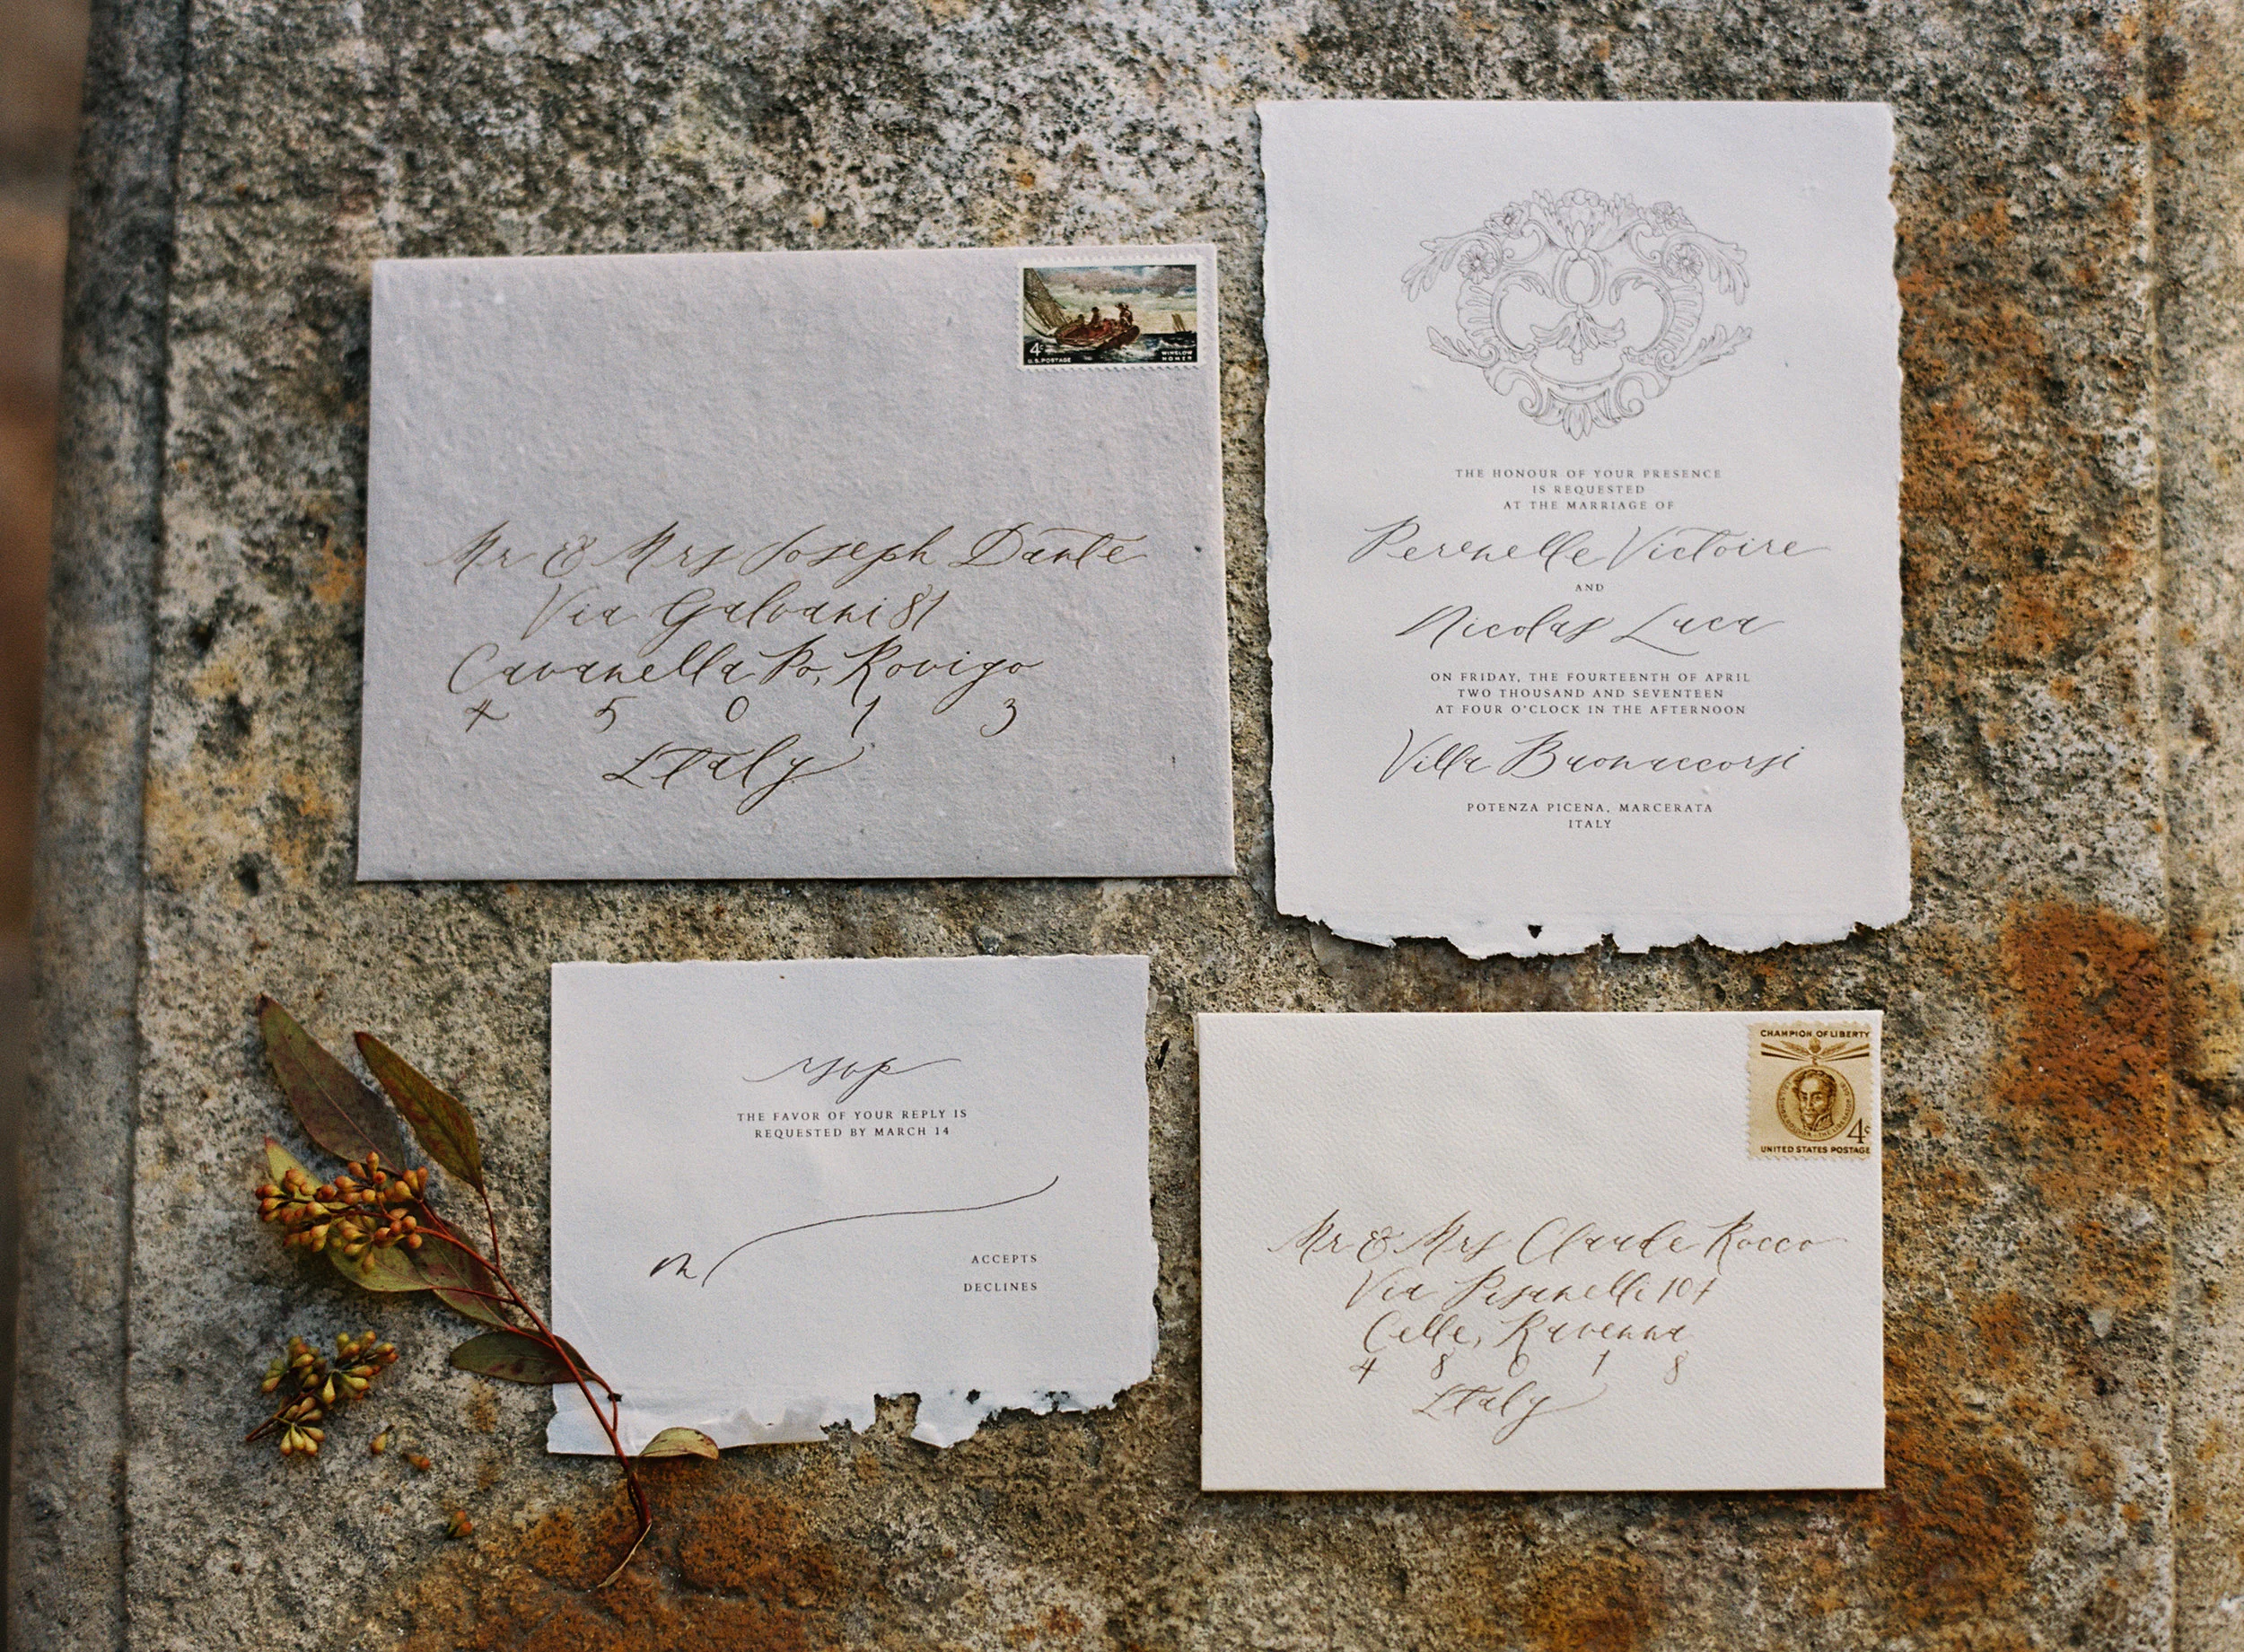 4c
U.S. POSTAGE
WINSLOW
HOMER
Mr & Mrs Joseph Dante
Via Galvani 81
Cavanella Po, Rovigo
4 5 0 1 3
Italy
THE HONOUR OF YOUR PRESENCE
IS REQUESTED
AT THE MARRIAGE OF
Perenelle Victoire
AND
Nicolas Luca
ON FRIDAY, THE FOURTEENTH OF APRIL
TWO THOUSAND AND SEVENTEEN
AT FOUR O'CLOCK IN THE AFTERNOON
Villa Buonaccorsi
POTENZA PICENA, MARCERATA
ITALY
rsvp
THE FAVOR OF YOUR REPLY IS
REQUESTED BY MARCH 14
M
ACCEPTS
DECLINES
CHAMPION OF LIBERTY
4c
UNITED STATES POSTAGE
Mr & Mrs Claude Rocco
Via Pisanelli 104
Celle, Ravenna
4 8 0 1 8
Italy